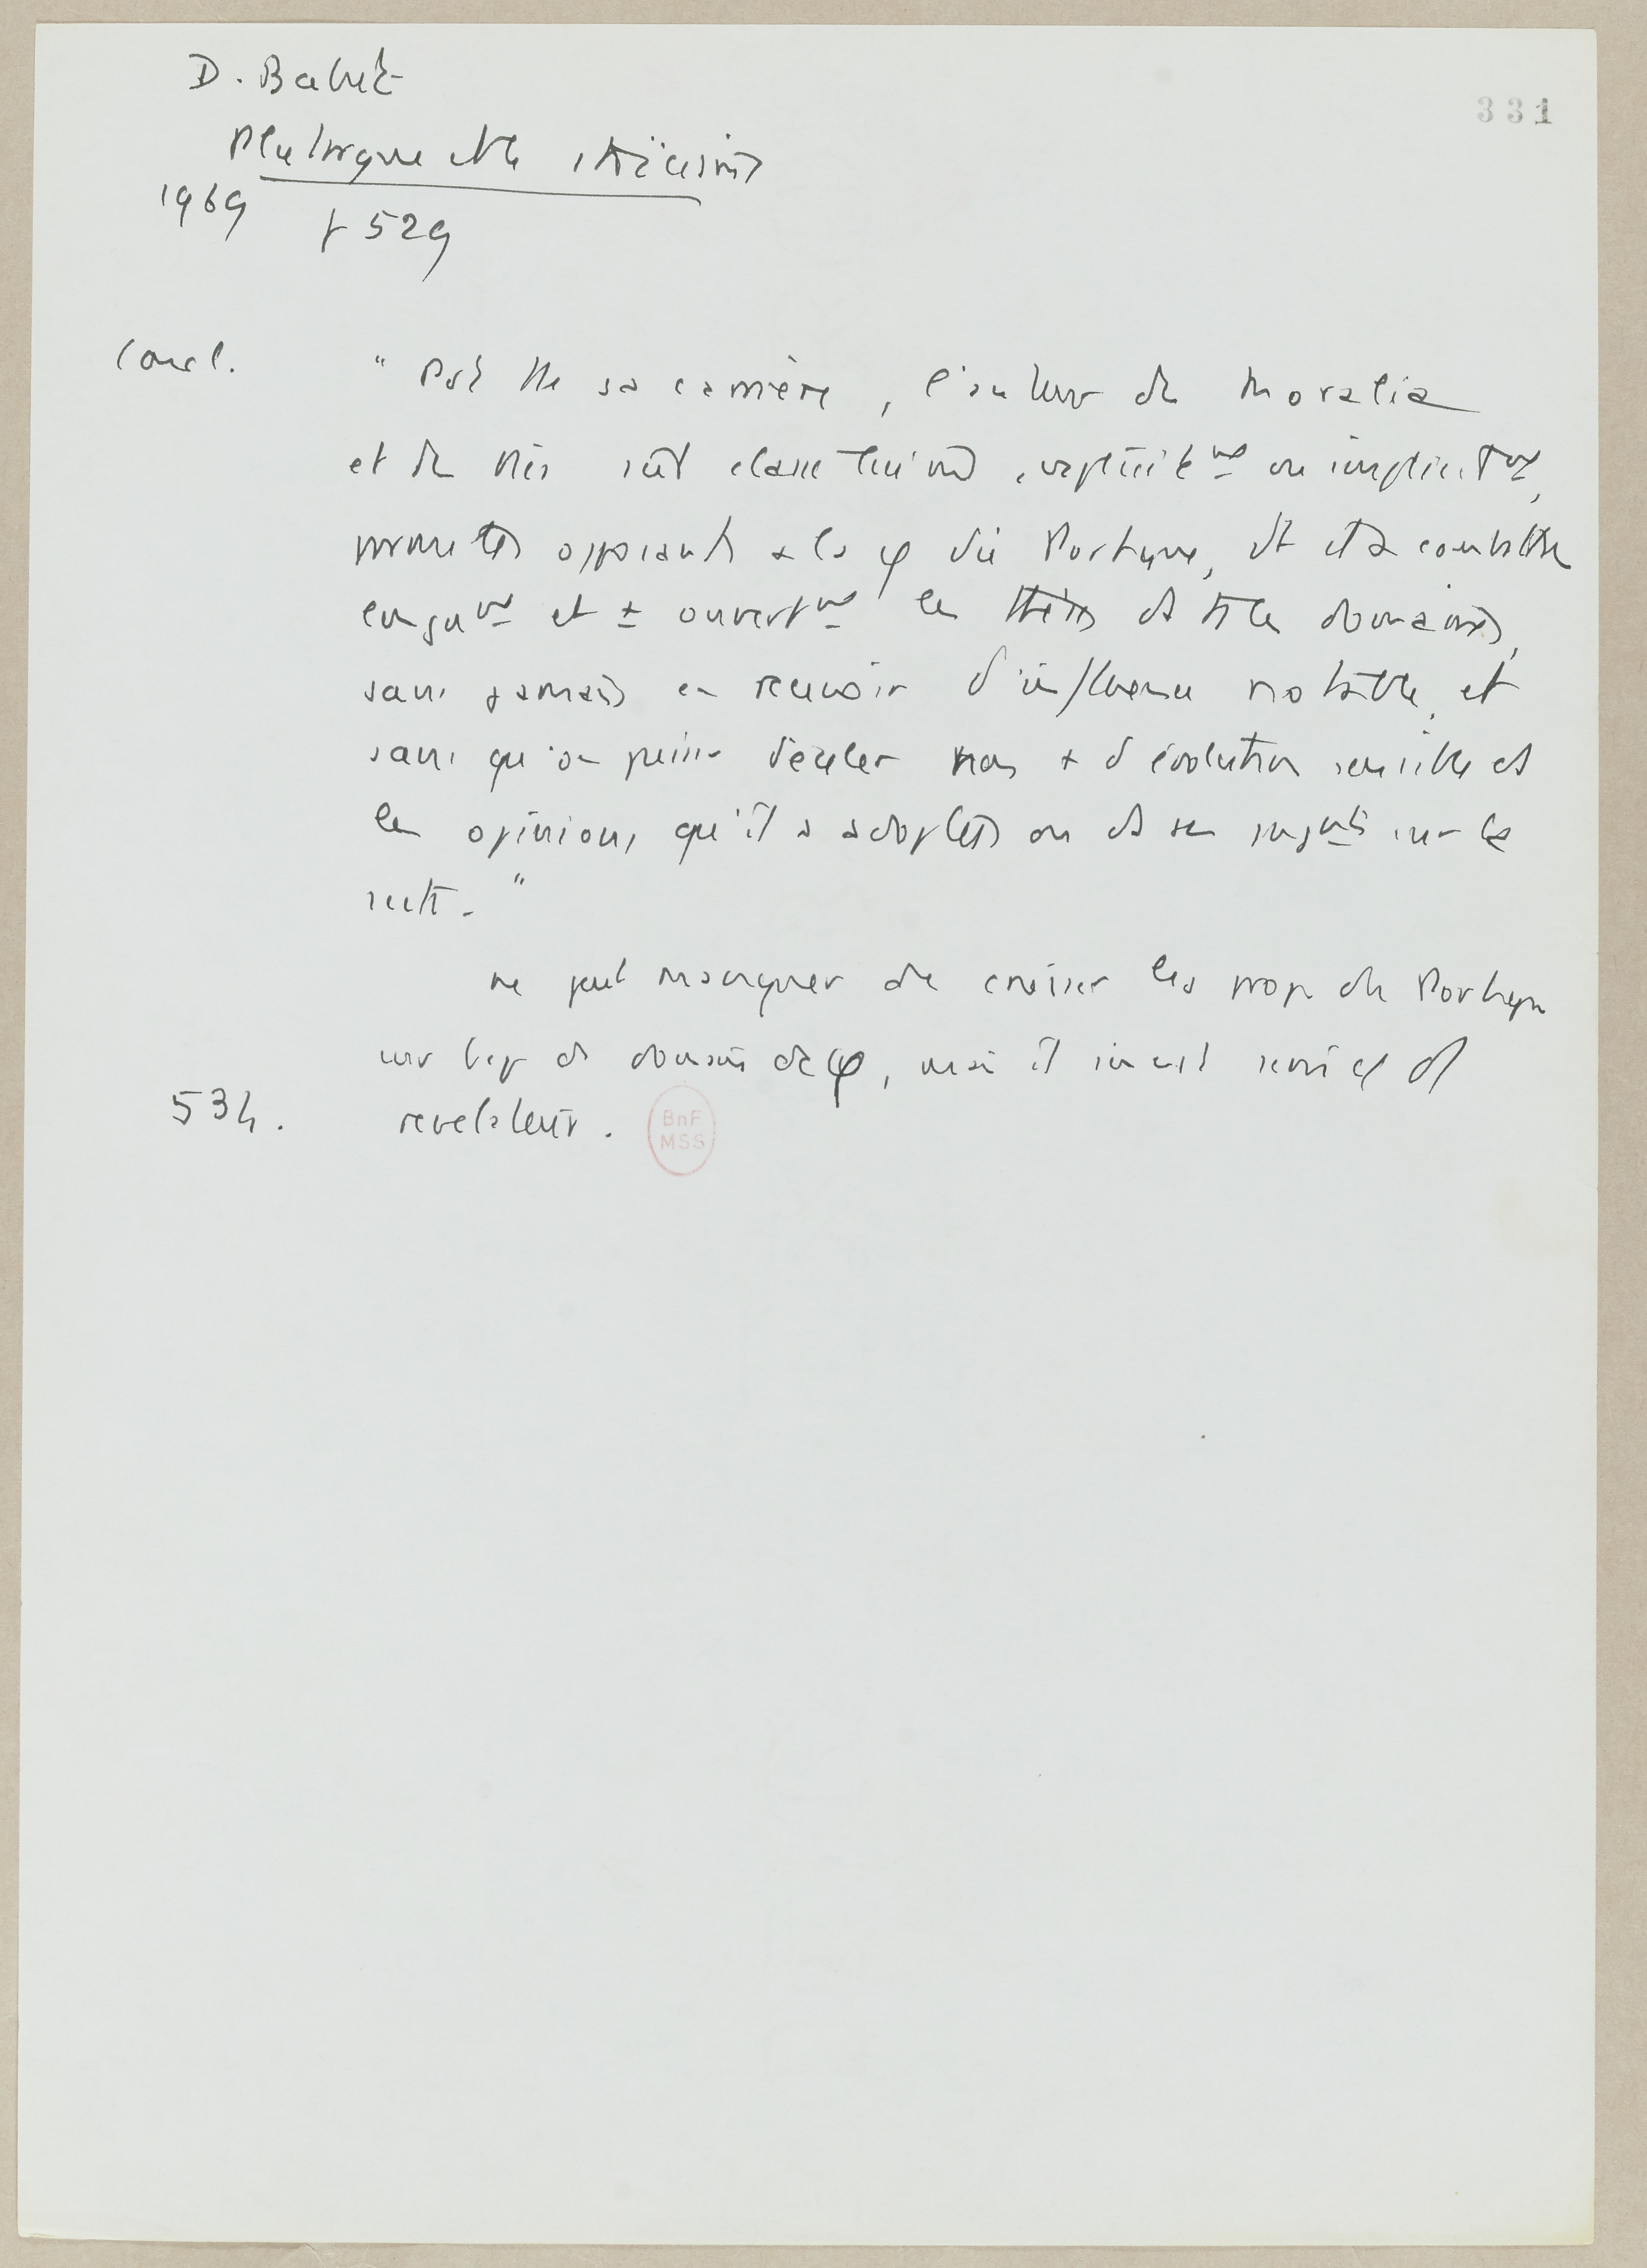 D. Babut
331
Plutarque et le stoïcisme
1969 p 529
Concl. " Pdt tte sa carrière, l'auteur de Moralia
et de Vies s'est clairement, explicitemt ou implicitmt,
opposant à la φ du Portique, et a combattu
longuemt et ± ouvertmt les thèses ds ts les domaines,
sans jamais en recevoir d'influence notable, et
sans qu'on puisse déceler non + d'évolution sensible ds
les opinions qu'il a adoptées ou ds ses jugmts sur la
secte. "
ne peut manquer de croiser les prop de Portique
sur ds domaine de φ, mais il s'en est servi cô d'1
534. révélateur.
BnF
MSS